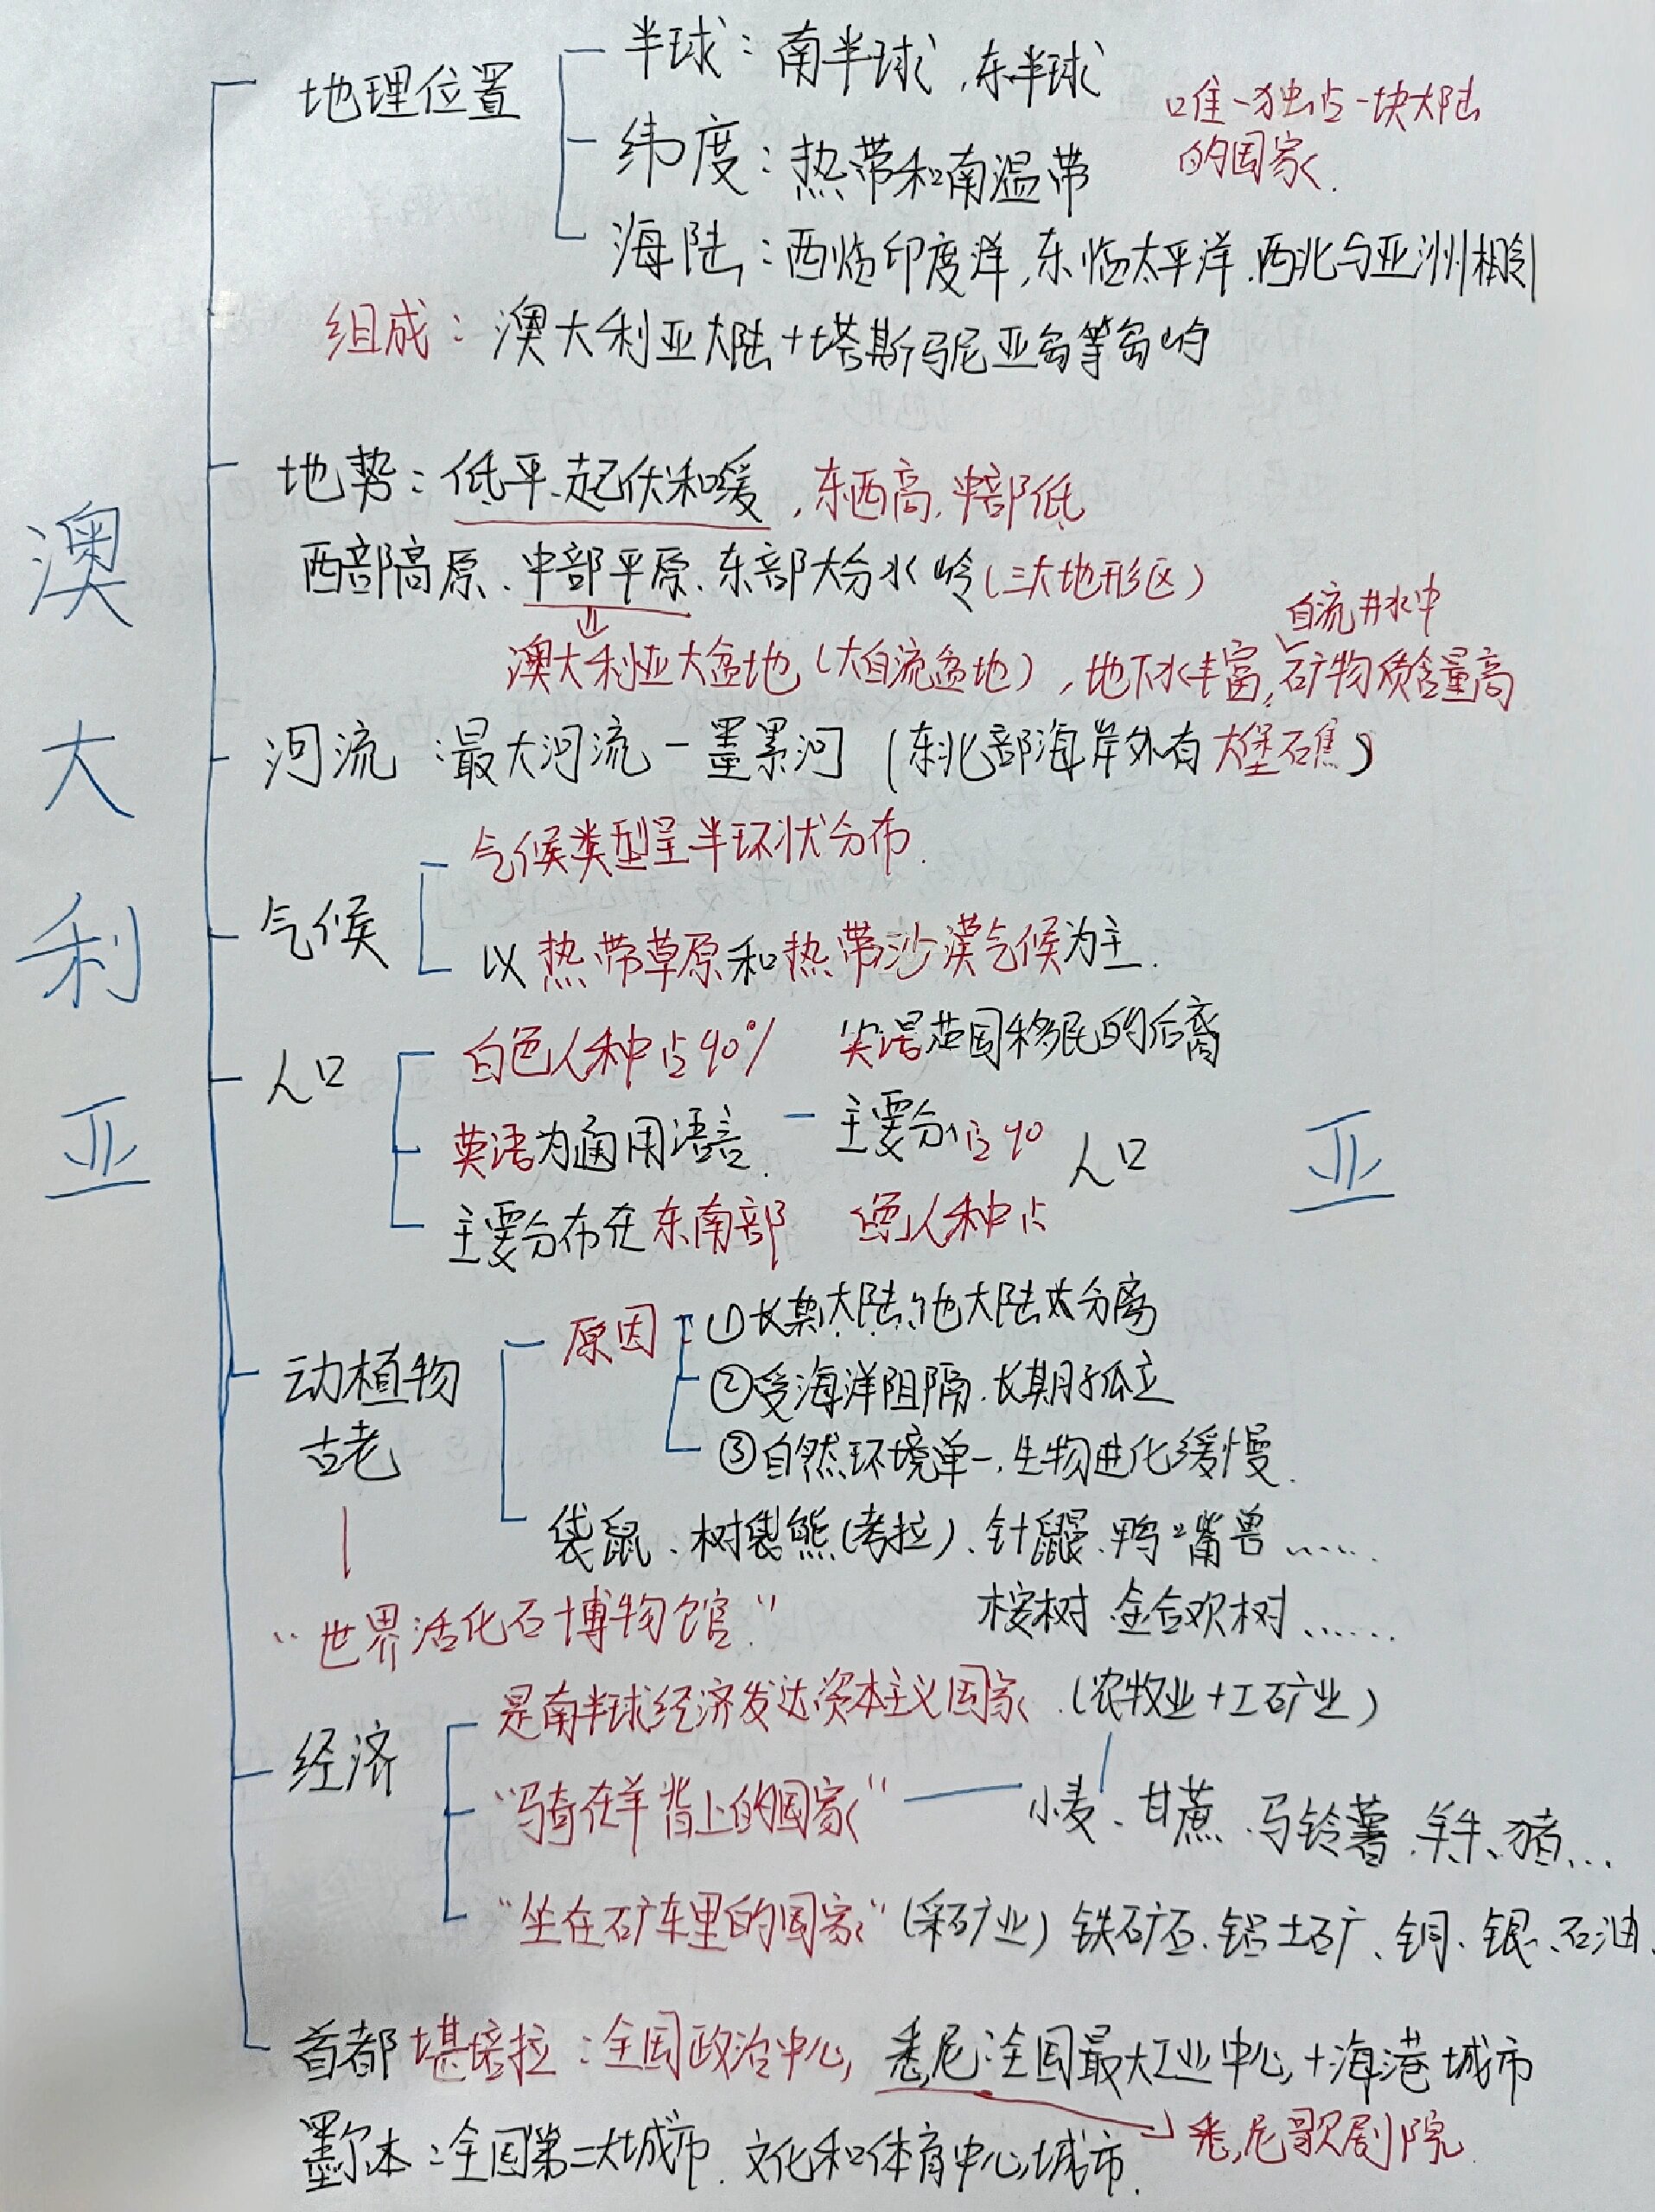 澳大利亚
地理位置
半球：南半球，东半球
唯一独占一块大陆
的国家.
纬度：热带和南温带
海陆：西临印度洋，东临太平洋.西北与亚洲相
组成：澳大利亚大陆+塔斯马尼亚岛等岛屿
地势：低平、起伏和缓，东西高，中部低
西部高原、中部平原、东部大分水岭(三大地形区)
自流井水中
澳大利亚大盆地(大自流盆地)，地下水丰富，矿物质含量高
河流：最大河流－墨累河(东北部海岸外有大堡礁)
气候类型呈半环状分布.
气候
以热带草原和热带沙漠气候为主.
人口
白色人种占90% 英国移民的后裔
英语为通用语言. － 主要分 占90 人口 亚
主要分布在东南部 色人种占
动植物
古老
原因：①长期 大陆 他大陆 分离
②受海洋阻隔.长期孤立
③自然环境单一，生物进化缓慢.
袋鼠、树袋熊(考拉)、针鼹、鸭嘴兽……
“世界活化石博物馆.”
桉树 金合欢树……
经济
是南半球经济发达资本主义国家.(农牧业+工矿业)
“骑在羊背上的国家” — 小麦、甘蔗、马铃薯、羊、牛、猪…
“坐在矿车里的国家”(采矿业)铁矿石、铝土矿、铜、银、石油、
首都堪培拉：全国政治中心，悉尼：全国最大工业中心，+海港城市
墨尔本：全国第二大城市.文化和体育中心城市.
悉尼歌剧院